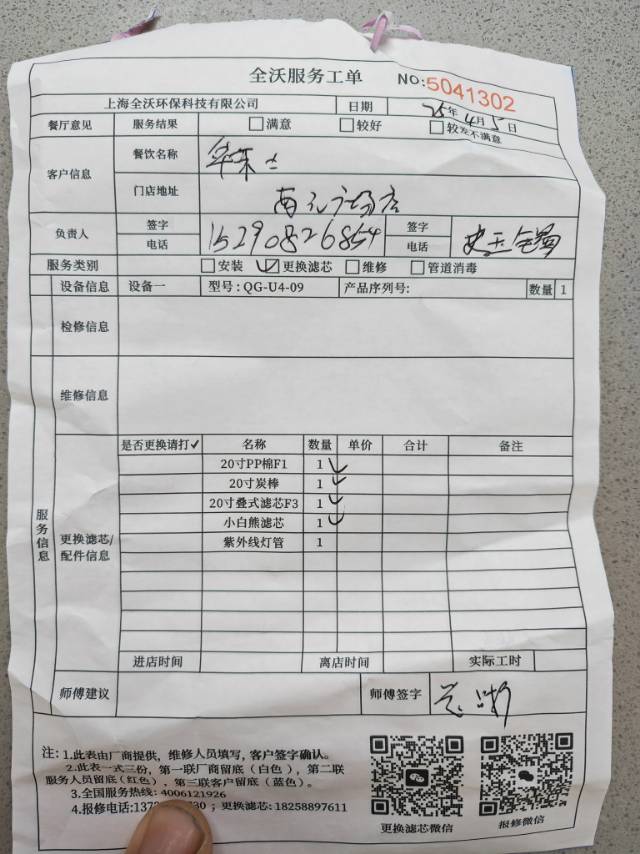 全沃服务工单 NO:5041302
上海全沃环保科技有限公司 日期 25年4月5日
餐厅意见 服务结果 满意 较好 较差不满意
客户信息 餐饮名称 华莱士
门店地址
负责人 签字 电话 15290826854 签字 电话
服务类别 安装 更换滤芯 维修 管道消毒
设备信息 设备一 型号:QG-U4-09 产品序列号: 数量 1
检修信息
维修信息
服务信息
更换滤芯/配件信息
是否更换请打✓ 名称 数量 单价 合计 备注
20寸PP棉F1 1
20寸炭棒 1
20寸叠式滤芯F3 1
小白熊滤芯 1
紫外线灯管 1
进店时间 离店时间 实际工时
师傅建议 师傅签字
注: 1.此表由厂商提供，维修人员填写，客户签字确认。
2.此表一式三份，第一联厂商留底（白色），第二联
服务人员留底(红色)，第三联客户留底（蓝色）。
3.全国服务热线: 4006121926
4.报修电话:137 30 ；更换滤芯: 18258897611
更换滤芯微信 报修微信